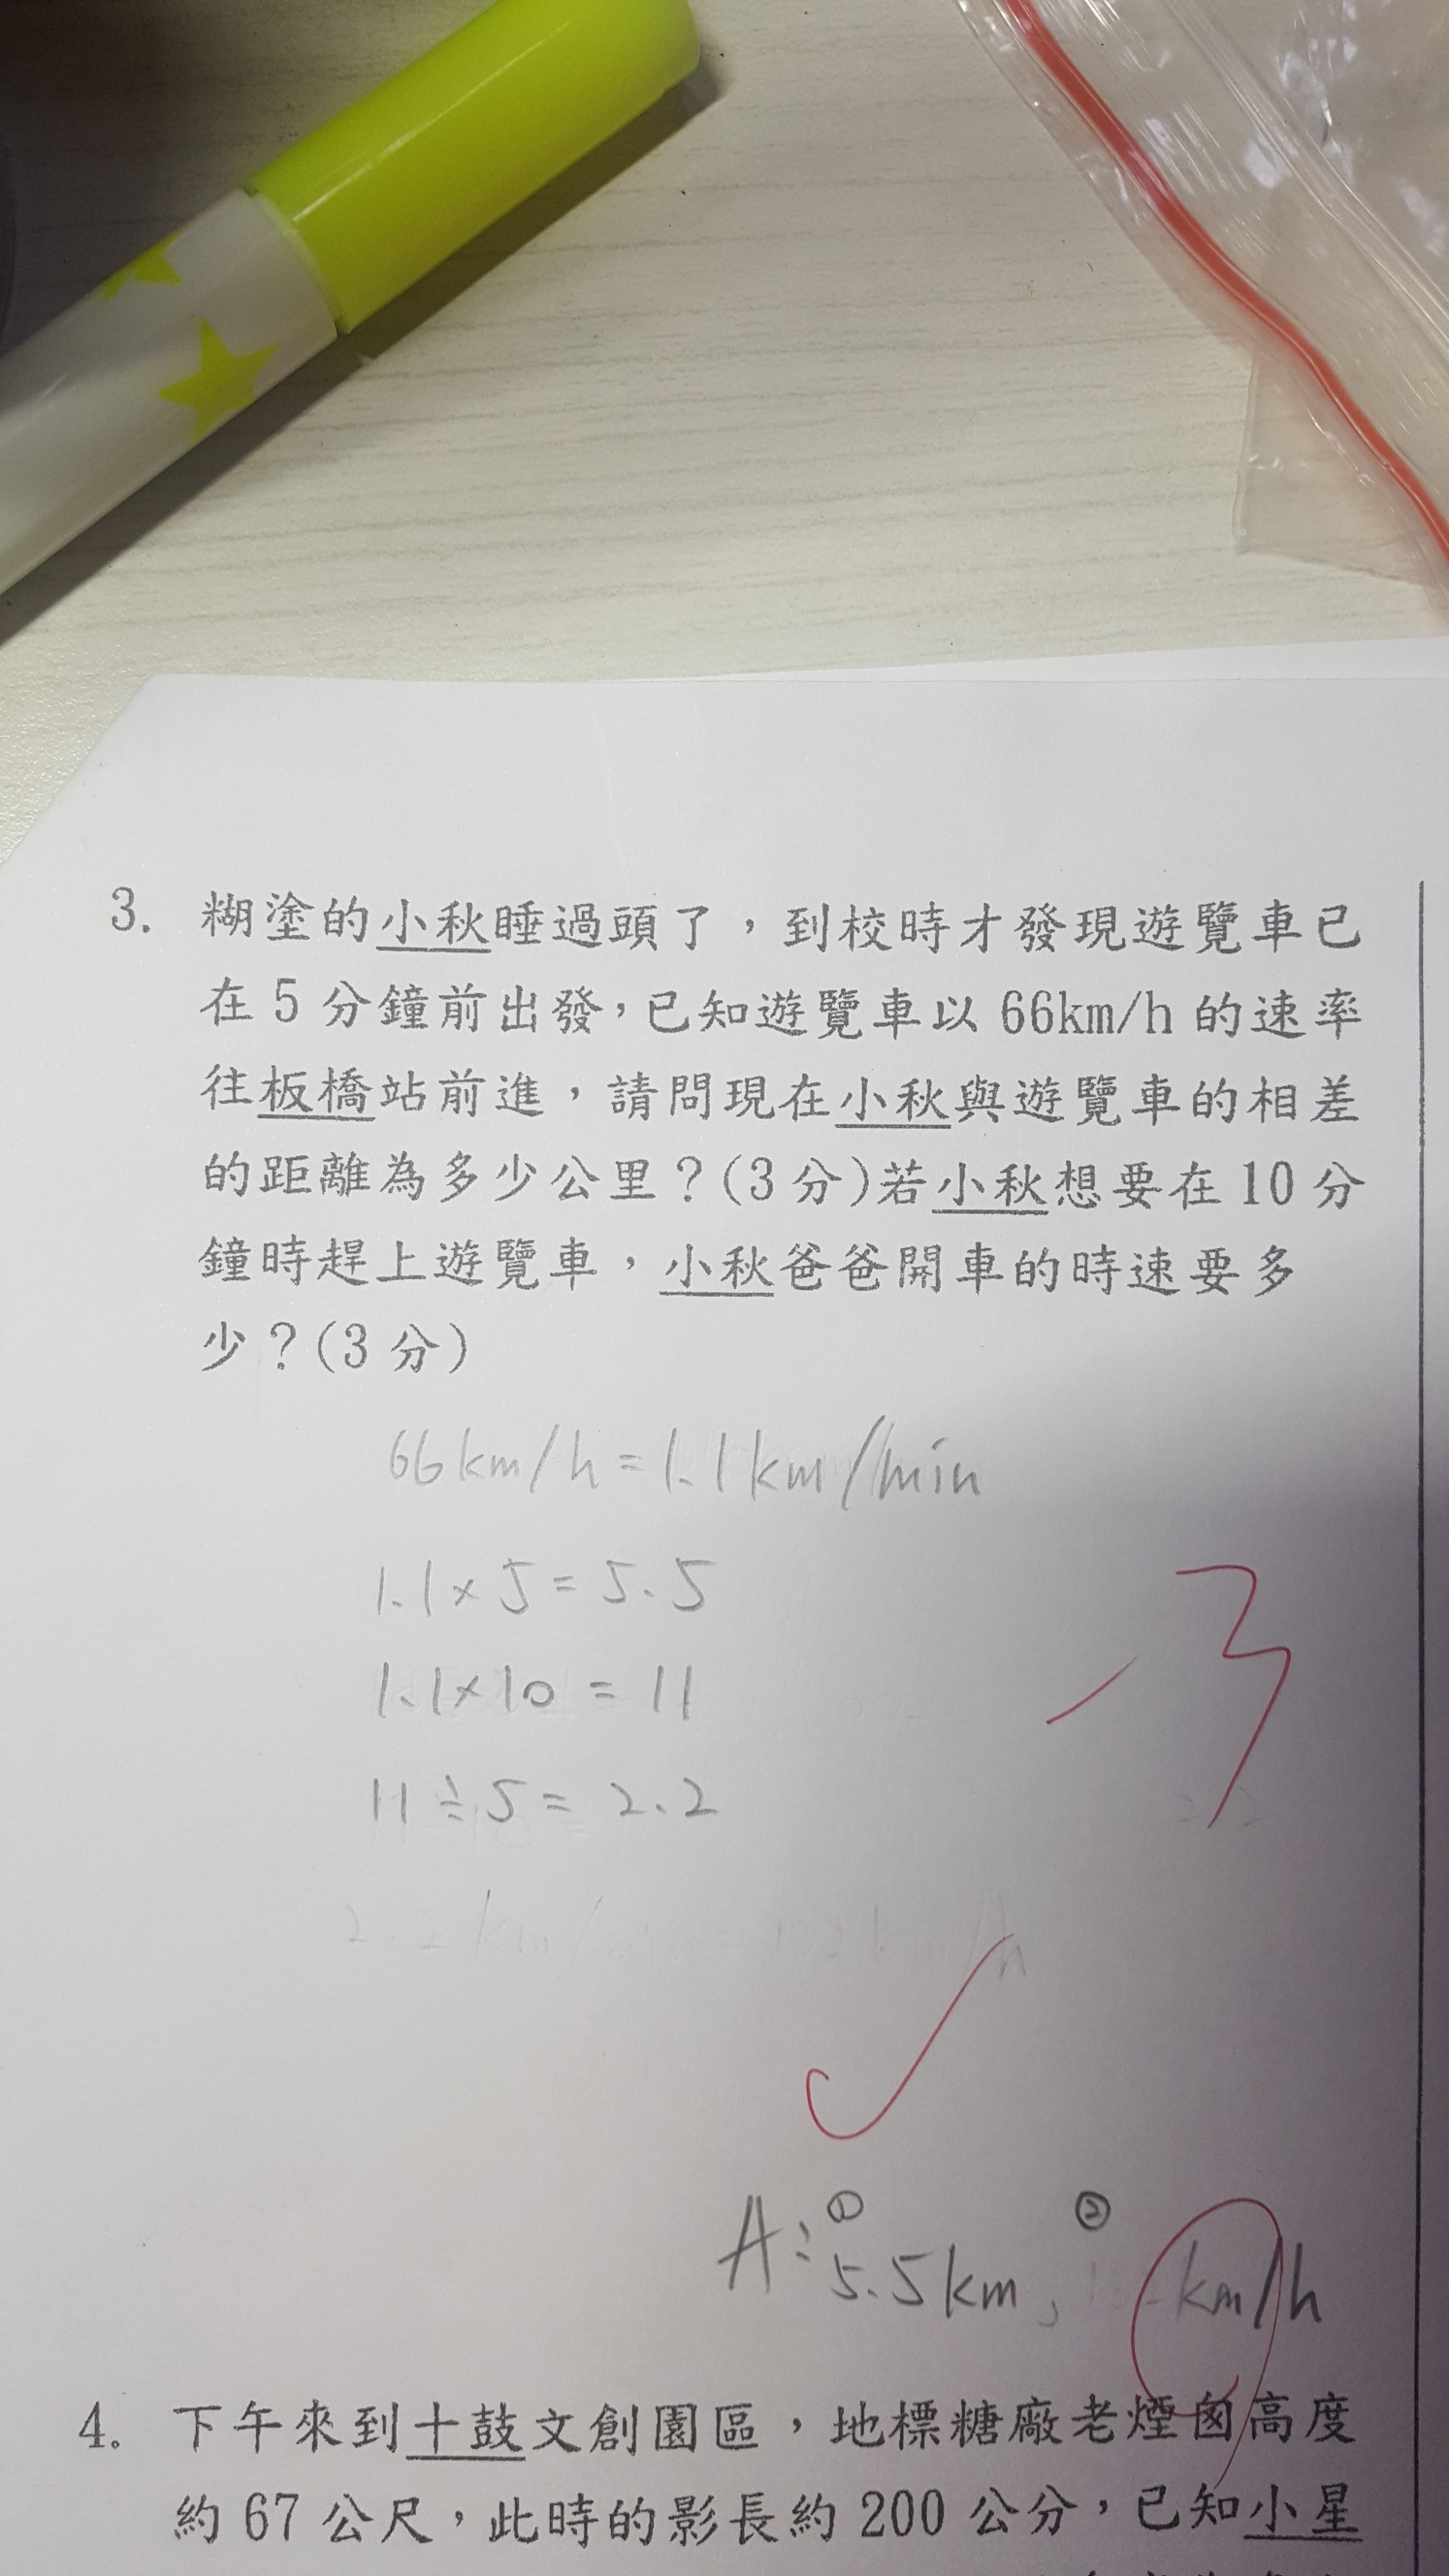 3. 糊塗的小秋睡過頭了，到校時才發現遊覽車已
在 5 分鐘前出發，已知遊覽車以 66km/h 的速率
往板橋站前進，請問現在小秋與遊覽車的相差
的距離為多少公里？(3 分)若小秋想要在 10 分
鐘時趕上遊覽車，小秋爸爸開車的時速要多
少？(3 分)
66km/h=1.1km/min
1.1×5=5.5
1.1×10=11
11÷5=2.2
-3
2.2km/
A:① 5.5km、② km/h
4. 下午來到十鼓文創園區，地標糖廠老煙囪高度
約 67 公尺，此時的影長約 200 公分，已知小星